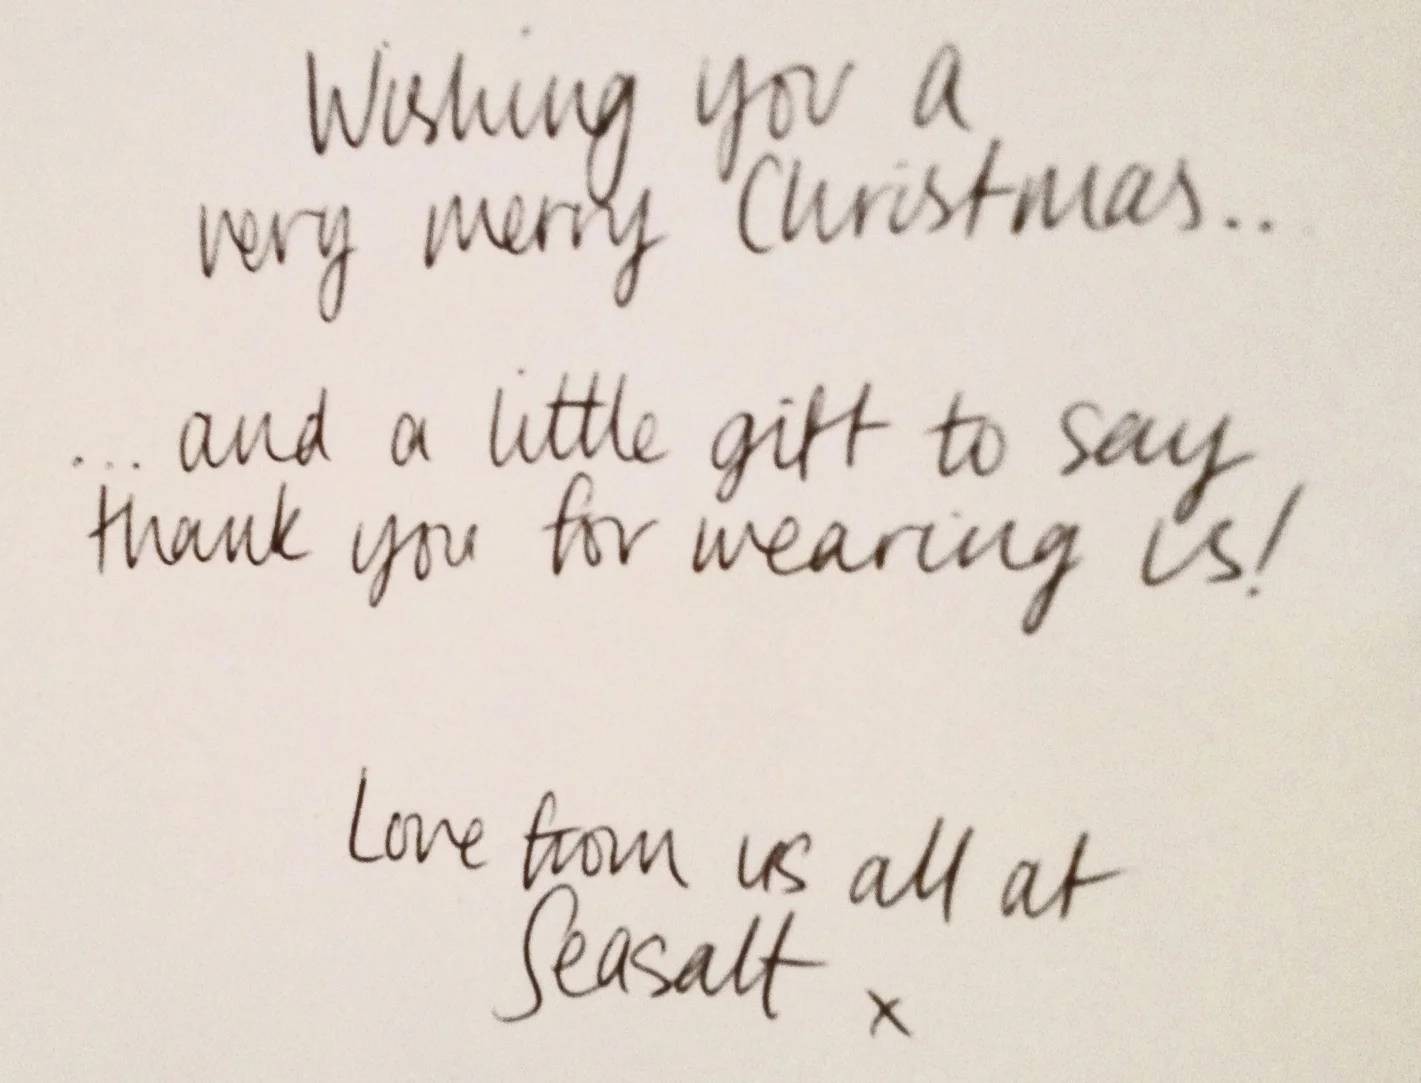 Wishing you a
very merry Christmas..
...and a little gift to say
thank you for wearing us!
Love from us all at
Seasalt x